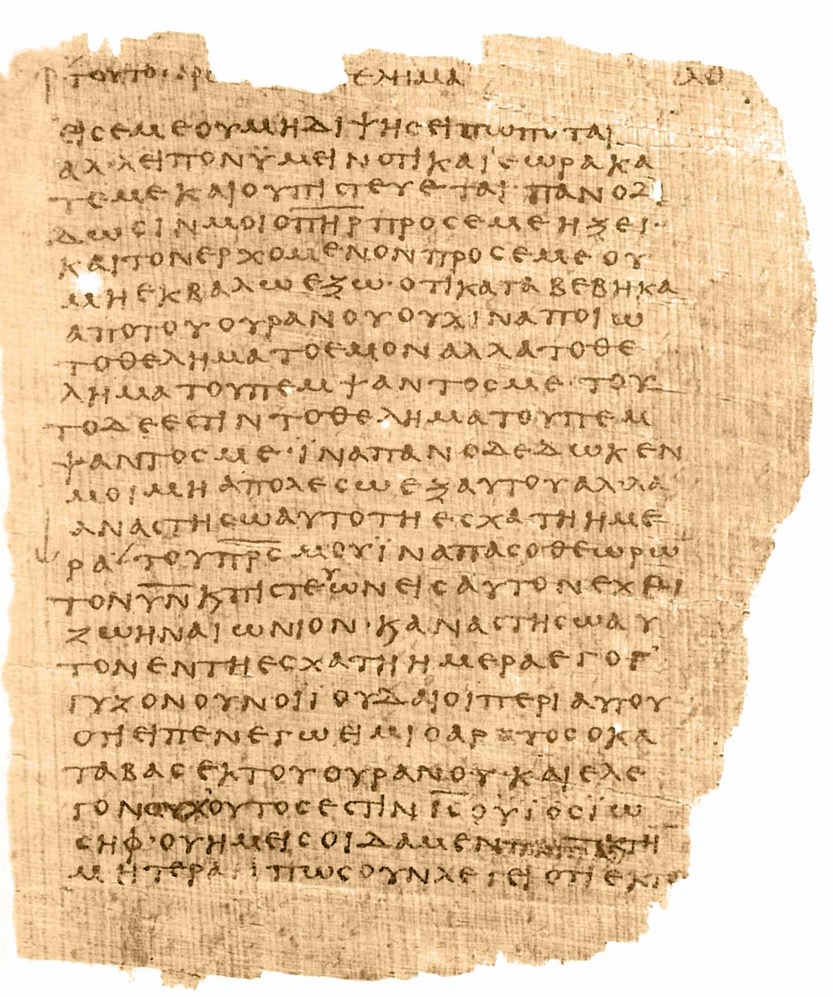 ΤΟΥΤΟ ΕΛΗΜΑ ΛΘ
ΕΙСΕΜΕΟΥΜΗΔΙΨΗСΕΙΠΩΠΟΤΑΙ
ΑΛ᾽ΛΕΙΠΟΝΫΜΕΙΝΟΤΙΚΑΙΕΩΡΑΚΑ
ΤΕΜΕΚΑΙΟΥΠΙСΤΕΥΕΤΑΙ·ΠΑΝΟΔΙ
ΔΩСΙΝΜΟΙΟΠ̅Η̅Ρ̅ΠΡΟСΕΜΕΗΞΕΙ·
ΚΑΙΤΟΝΕΡΧΟΜΕΝΟΝΠΡΟСΕΜΕΟΥ
ΜΗΕΚΒΑΛΩΕΞΩ·ΟΤΙΚΑΤΑΒΕΒΗΚΑ
ΑΠΟΤΟΥΟΥΡΑΝΟΥΟΥΧΙΝΑΠΟΙΩ
ΤΟΘΕΛΗΜΑΤΟΕΜΟΝΑΛΛΑΤΟΘΕ
ΛΗΜΑΤΟΥΠΕΜΨΑΝΤΟСΜΕ·ΤΟΥ
ΤΟΔΕΕСΤΙΝΤΟΘΕΛΗΜΑΤΟΥΠΕΜ
ΨΑΝΤΟСΜΕ·ΪΝΑΠΑΝΟΔΕΔΩΚΕΝ
ΜΟΙΜΗΑΠΟΛΕСΩΕΞΑΥΤΟΥΑΛ᾽ΛΑ
ΑΝΑСΤΗСΩΑΥΤΟΤΗΕСΧΑΤΗΗΜΕ
ΡΑ⸍ΤΟΥΠ̅Ρ̅С̅ΜΟΥΪΝΑΠΑСΟΘΕΩΡΩ
ΤΟΝΥ̅Ν̅ϗΠΙСΤΕΥΩΝΕΙСΑΥΤΟΝΕΧΕΙ
ΖΩΗΝΑΙΩΝΙΟΝ·ϗΑΝΑСΤΗСΩΑΥ
ΤΟΝΕΝΤΗΕСΧΑΤΗΗΜΕΡΑΕΓΟΓ᾽
ΓΥΖΟΝΟΥΝΟΙΪΟΥΔΑΙΟΙΠΕΡΙΑΥΤΟΥ
ΟΤΙΕΙΠΕΝΕΓΩΕΙΜΙΟΑΡΤΟСΟΚΑ
ΤΑΒΑСΕΚΤΟΥΟΥΡΑΝΟΥ·ΚΑΙΕΛΕ
ΓΟΝΟΥΧΟΥΤΟСΕСΤΙΝΙ̅С̅ΟΥΪΟСΪΩ
СΗΦ·ΟΥΗΜΕΙСΟΙΔΑΜΕΝ ΤΗ
ΜΗΤΕΡΑ ΠΩСΟΥΝΛΕΓΕΙΟΤΙΕΚΤΟ